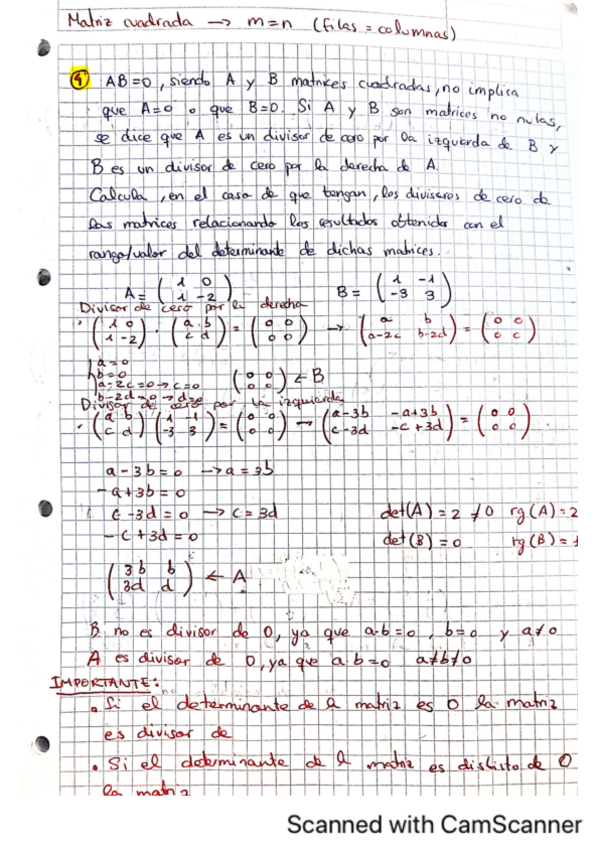 Matriz cuadrada → m=n (filas = columnas)
4 AB=0, siendo A y B matrices cuadradas, no implica
que A=0 o que B=0. Si A y B son matrices no nulas,
se dice que A es un divisor de cero por la izquierda de B y
B es un divisor de cero por la derecha de A.
Calcula, en el caso de que tengan, los divisores de cero de
las matrices relacionando los resultados obtenidos con el
rango/valor del determinante de dichas matrices.
A = (1 0; 1 -2) B = (1 -1; -3 3)
Divisor de cero por la derecha
· (1 0; 1 -2) · (a b; c d) = (0 0; 0 0) → (a b; a-2c b-2d) = (0 0; 0 0)
a=0
b=0
a-2c=0 → c=0 (0 0; 0 0) ← B
b-2d=0 → d=0
Divisor de cero por la izquierda
· (a b; c d) (1 -1; -3 3) = (0 0; 0 0) → (a-3b -a+3b; c-3d -c+3d) = (0 0; 0 0)
a-3b=0 → a=3b
-a+3b=0
c-3d=0 → c=3d det(A)=2≠0 rg(A)=2
-c+3d=0 det(B)=0 rg(B)=1
(3b b; 3d d) ← A
B no es divisor de 0, ya que a·b=0, b=0 y a≠0
A es divisor de 0, ya que a·b=0 a≠b≠0
IMPORTANTE:
· Si el determinante de la matriz es 0 la matriz
es divisor de
· Si el determinante de la matriz es distinto de 0
la matriz
Scanned with CamScanner